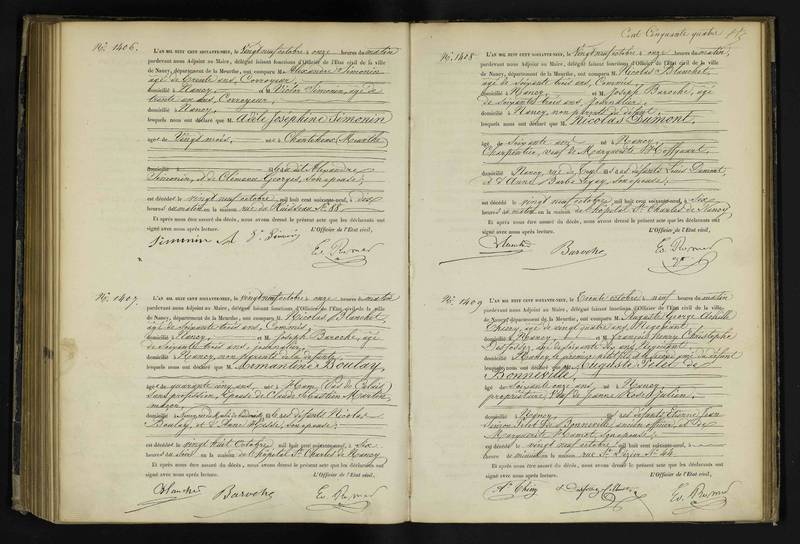 Cent Cinquante quatre
N.º 1406.
L'AN MIL HUIT CENT SOIXANTE-NEUF, le Vingt neuf octobre à onze heures du matin
pardevant nous Adjoint au Maire, délégué faisant fonctions d'Officier de l'État civil de la ville
de Nancy, département de la Meurthe, ont comparu M. Alexandre Simonin
âgé de trente ans, Corroyeur,
domicilié à Nancy, et M. Victor Simonin, âgé de
trente un ans, Corroyeur,
domicilié à Nancy,
lesquels nous ont déclaré que M. Adèle Joséphine Simonin
âgée de Vingt mois, née à Chanteheux, Meurthe
domicilié à
Simonin, & de Clémence Georges, son épouse;
est décédée le vingt neuf octobre, mil huit cent soixante-neuf, à dix
heures du matin en la maison rue du Ruisseau N.º 88
Et après nous être assuré du décès, nous avons dressé le présent acte que les déclarants ont
signé avec nous après lecture. L'Officier de l'État civil,
Simonin
N.º 1407.
L'AN MIL HUIT CENT SOIXANTE-NEUF, le vingt neuf octobre à onze heures du matin
pardevant nous Adjoint au Maire, délégué faisant fonctions d'Officier de l'État civil de la ville
de Nancy, département de la Meurthe, ont comparu M. Nicolas Blanchet,
âgé de soixante trois ans, Commis,
domicilié à Nancy, et M. Joseph Baroche, âgé
de soixante trois ans, journalier,
domicilié à Nancy, non parents de la défunte,
lesquels nous ont déclaré que M. Armantine Boulay,
âgée de quarante cinq ans, née à Ham, (Pas de Calais)
Sans profession, épouse de Claude Sébastien Martin
maçon,
domicilié à les défunts Nicolas
Boulay, et son épouse;
est décédée le vingt huit Octobre, mil huit cent soixante-neuf, à six
heures du soir en la maison de l'hôpital St. Charles de Nancy
Et après nous être assuré du décès, nous avons dressé le présent acte que les déclarants ont
signé avec nous après lecture. L'Officier de l'État civil,
Blanchet Baroche
N.º 1408.
L'AN MIL HUIT CENT SOIXANTE-NEUF, le Vingt neuf octobre à onze heures du matin,
pardevant nous Adjoint au Maire, délégué faisant fonctions d'Officier de l'État civil de la ville
de Nancy, département de la Meurthe, ont comparu M. Nicolas Blanchet,
âgé de soixante trois ans, Commis,
domicilié à Nancy, et M. Joseph Baroche, âgé
de soixante trois ans, journalier,
domicilié à Nancy, non parents du défunt,
lesquels nous ont déclaré que M. Nicolas Dumont,
âgé de soixante ans né à Nancy,
Charpentier, veuf de Marguerite Hoffmann,
domicilié à Nancy, rue de des défunts Louis Dumont,
& d'Anne Barbe son épouse;
est décédé le vingt neuf octobre, mil huit cent soixante-neuf, à six
heures du matin en la maison de l'hôpital St. Charles de Nancy
Et après nous être assuré du décès, nous avons dressé le présent acte que les déclarants ont
signé avec nous après lecture. L'Officier de l'État civil,
Blanchet Baroche
N.º 1409
L'AN MIL HUIT CENT SOIXANTE-NEUF, le Trente octobre à neuf heures du matin
pardevant nous Adjoint au Maire, délégué faisant fonctions d'Officier de l'État civil de la ville
de Nancy, département de la Meurthe, ont comparu M. Auguste George Achille
Thiery, âgé de vingt quatre ans, Négociant,
domicilié à Nancy, et M. François Henry Christophe
âgé de soixante dix ans,
domicilié à Nancy, le premier
lesquels nous ont déclaré que M. Auguste Pelet de
Bonneville,
âgé de soixante onze ans, né à Nancy,
propriétaire, Veuf de Jeanne Rose Julien,
domicilié à Nancy, des défunts Etienne Jean
Pelet de Bonneville ancien officier, et de
Marguerite son épouse;
est décédé le vingt neuf octobre, mil huit cent soixante-neuf, à
heure de en la maison rue St. Dizier N.º 44
Et après nous être assuré du décès, nous avons dressé le présent acte que les déclarants ont
signé avec nous après lecture. L'Officier de l'État civil,